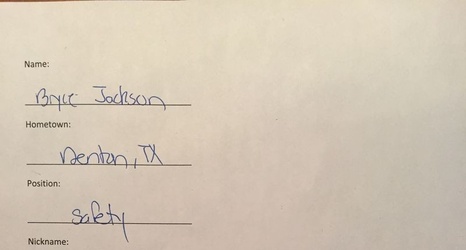 Name:
Bryce Jackson
Hometown:
Denton, TX
Position:
Safety
Nickname: